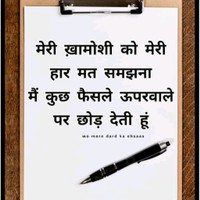 मेरी ख़ामोशी को मेरी
हार मत समझना
मैं कुछ फैसले ऊपरवाले
पर छोड़ देती हूं
wo mere dard ka ehsaas